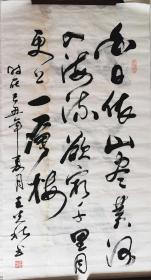 白日依山尽黄河
入海流欲穷千里目
更上一层楼
时在己丑年春月王
书